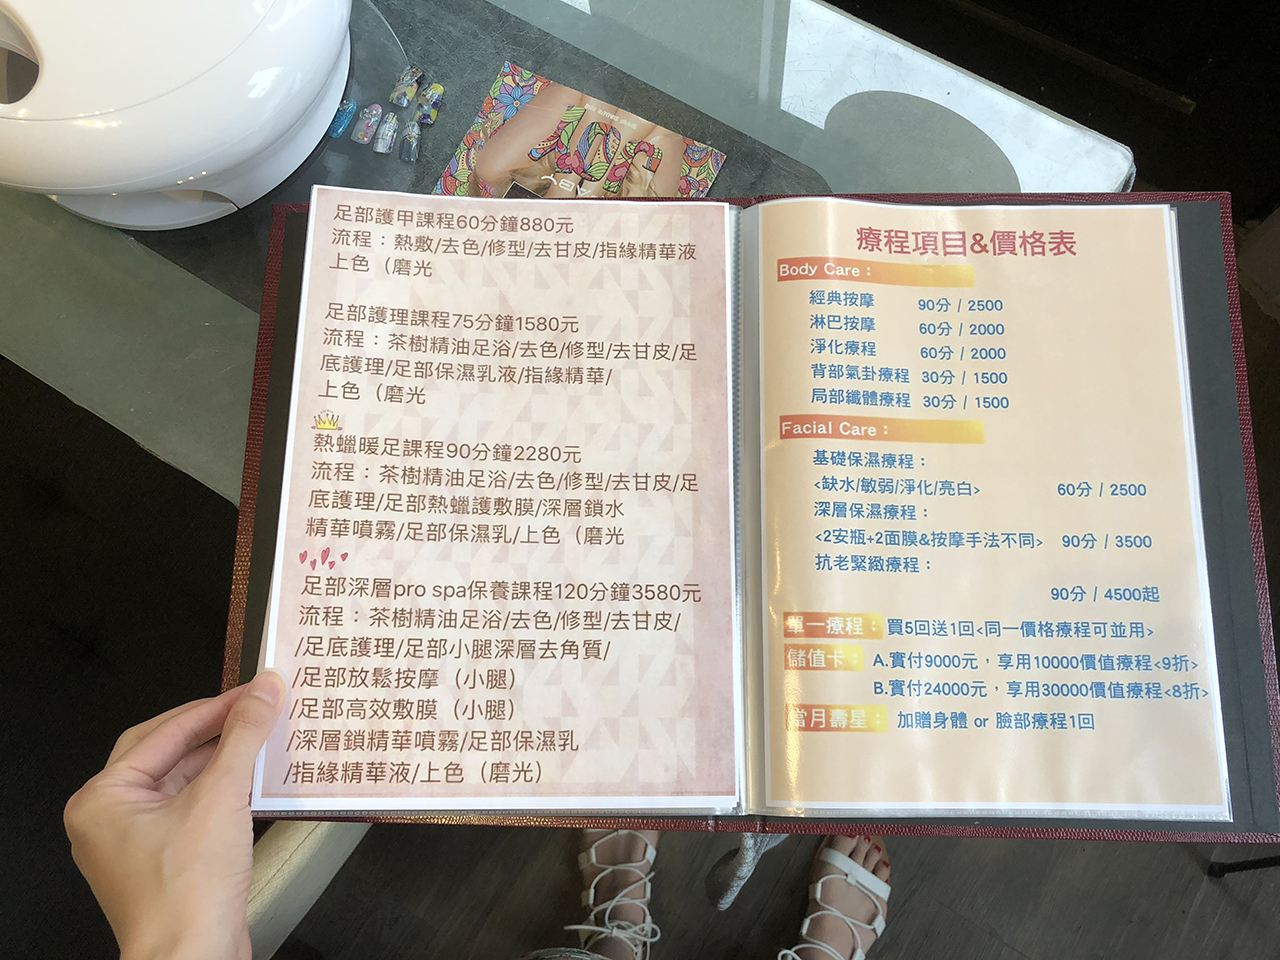 足部護甲課程60分鐘880元
流程：熱敷/去色/修型/去甘皮/指緣精華液
上色（磨光
足部護理課程75分鐘1580元
流程：茶樹精油足浴/去色/修型/去甘皮/足
底護理/足部保濕乳液/指緣精華/
上色（磨光
熱蠟暖足課程90分鐘2280元
流程：茶樹精油足浴/去色/修型/去甘皮/足
底護理/足部熱蠟護敷膜/深層鎖水
精華噴霧/足部保濕乳/上色（磨光
足部深層pro spa保養課程120分鐘3580元
流程：茶樹精油足浴/去色/修型/去甘皮/
/足底護理/足部小腿深層去角質/
/足部放鬆按摩（小腿）
/足部高效敷膜（小腿）
/深層鎖精華噴霧/足部保濕乳
/指緣精華液/上色（磨光）
療程項目&價格表
Body Care：
經典按摩 90分 / 2500
淋巴按摩 60分 / 2000
淨化療程 60分 / 2000
背部氣卦療程 30分 / 1500
局部纖體療程 30分 / 1500
Facial Care：
基礎保濕療程：
<缺水/敏弱/淨化/亮白> 60分 / 2500
深層保濕療程：
<2安瓶+2面膜&按摩手法不同> 90分 / 3500
抗老緊緻療程：
90分 / 4500起
單一療程： 買5回送1回<同一價格療程可並用>
儲值卡： A.實付9000元，享用10000價值療程<9折>
B.實付24000元，享用30000價值療程<8折>
當月壽星： 加贈身體 or 臉部療程1回